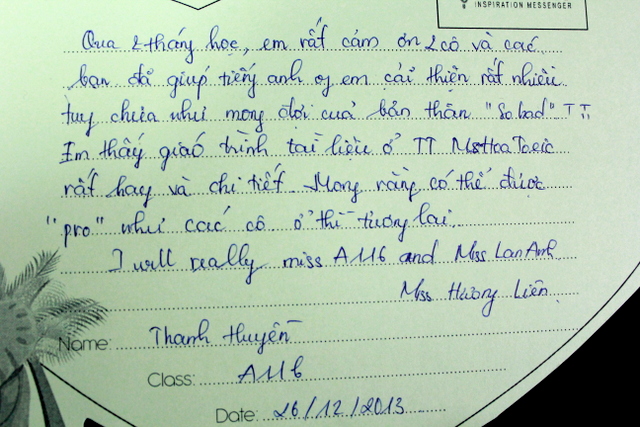 INSPIRATION MESSENGER
Qua 2 tháng học, em rất cám ơn 2 cô và các
bạn đã giúp tiếng anh of em cải thiện rất nhiều
tuy chưa như mong đợi của bản thân "So bad" TT
Em thấy giáo trình tài liệu ở TT MsHoa Toeic
rất hay và chi tiết. Mong rằng có thể được
"pro" như các cô ở thì tương lai.
I will really miss A116 and Miss Lan Anh
Miss Hương Liên.
Name: Thanh Huyền
Class: A116
Date: 26/12/2013